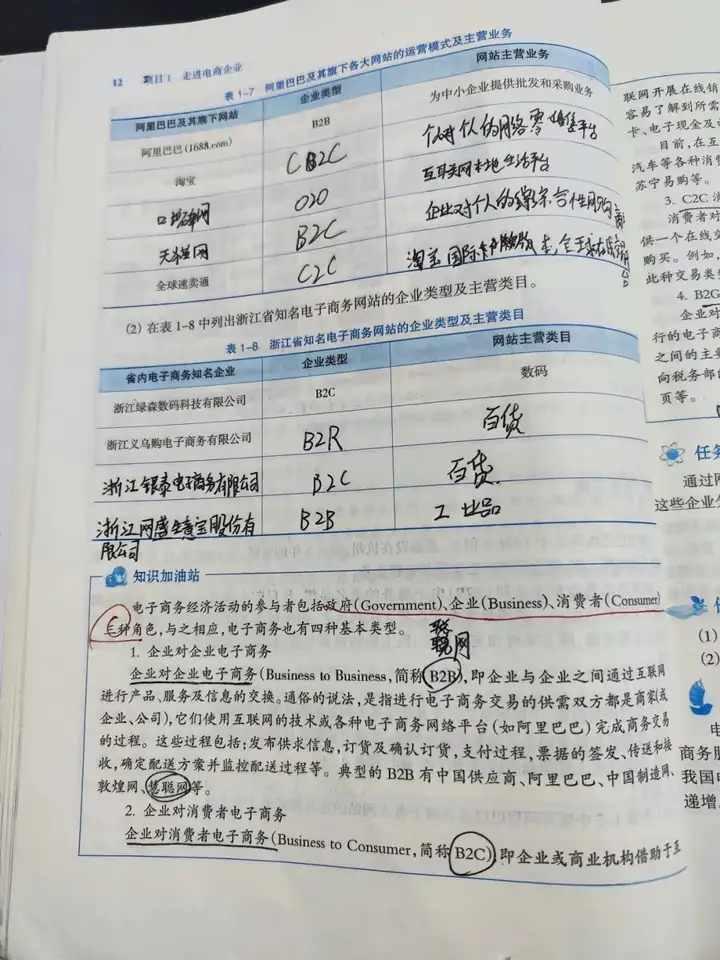 12 项目1 走进电商企业
表 1-7 阿里巴巴及其旗下各大网站的运营模式及主营业务
阿里巴巴及其旗下网站 企业类型 网站主营业务
阿里巴巴(1688.com) B2B 为中小企业提供批发和采购业务
淘宝 C2C 个人对个人的网络零售平台
口碑网 O2O 互联网本地生活平台
天猫网 B2C 企业对个人的综合性网购
全球速卖通 C2C 淘宝国际
(2) 在表 1-8 中列出浙江省知名电子商务网站的企业类型及主营类目。
表 1-8 浙江省知名电子商务网站的企业类型及主营类目
省内电子商务知名企业 企业类型 网站主营类目
浙江绿森数码科技有限公司 B2C 数码
浙江义乌购电子商务有限公司 B2R 百货
浙江银泰电子商务有限公司 B2C 百货
浙江网盛生意宝股份有限公司 B2B 工业品
知识加油站
电子商务经济活动的参与者包括政府(Government)、企业(Business)、消费者(Consumer)
三种角色,与之相应,电子商务也有四种基本类型。
慧聪网
1. 企业对企业电子商务
企业对企业电子商务(Business to Business,简称 B2B),即企业与企业之间通过互联网
进行产品、服务及信息的交换。通俗的说法,是指进行电子商务交易的供需双方都是商家(或
企业、公司),它们使用互联网的技术或各种电子商务网络平台(如阿里巴巴)完成商务交易
的过程。这些过程包括:发布供求信息,订货及确认订货,支付过程,票据的签发、传送和接
收,确定配送方案并监控配送过程等。典型的 B2B 有中国供应商、阿里巴巴、中国制造网、
敦煌网、慧聪网等。
2. 企业对消费者电子商务
企业对消费者电子商务(Business to Consumer,简称 B2C),即企业或商业机构借助于互
联网开展在线销
容易了解到所需
卡、电子现金及
目前,在互
汽车等各种消费
苏宁易购等。
3. C2C 消
消费者对
供一个在线交
购买。例如,
此种交易类
4. B2G
企业对
行的电子商
之间的主要
向税务部
页等。
任务
通过网
这些企业分
(1)
(2)
电
商务服
我国
递增